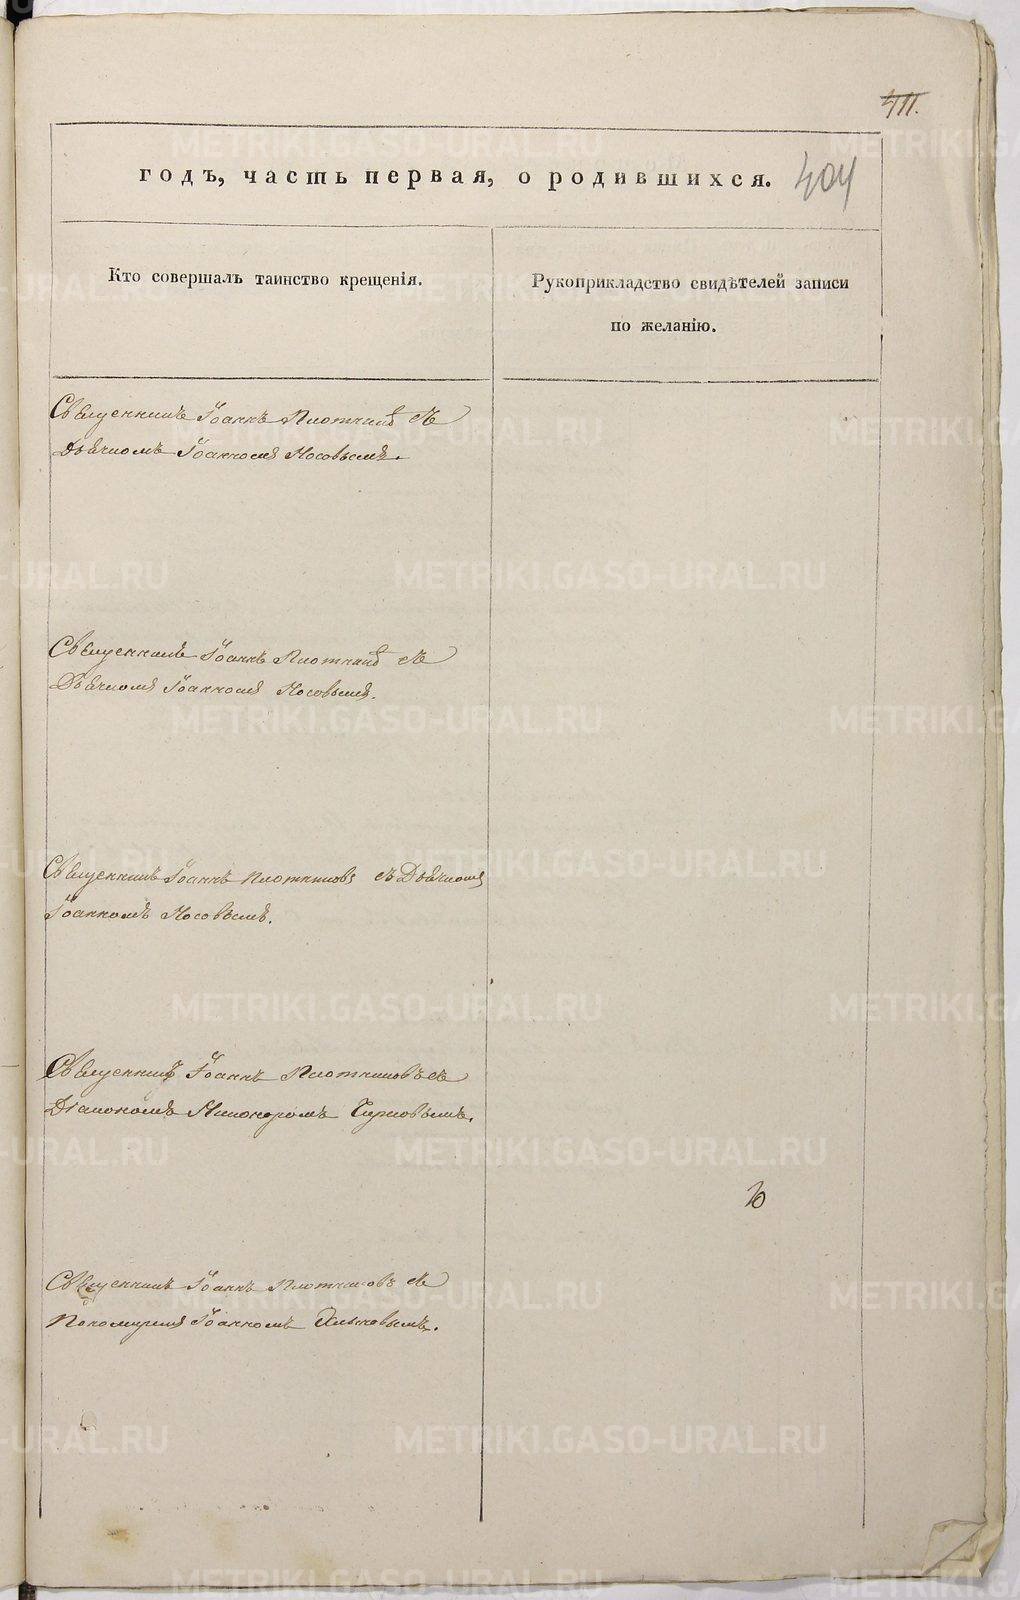 411.
годъ, часть первая, о родившихся. 404
Кто совершалъ таинство крещенія.
Рукоприкладство свидѣтелей записи
по желанію.
Священникъ Іоаннъ Плотниковъ съ
Дьячкомъ Іоанномъ Носовымъ.
Священникъ Іоаннъ Плотниковъ съ
Дьячкомъ Іоанномъ Носовымъ.
Священникъ Іоаннъ Плотниковъ съ Дьячкомъ
Іоанномъ Носовымъ.
Священникъ Іоаннъ Плотниковъ съ
Діакономъ Никаноромъ
Священникъ Іоаннъ Плотниковъ съ
Пономаремъ Іоанномъ
METRIKI.GASO-URAL.RU